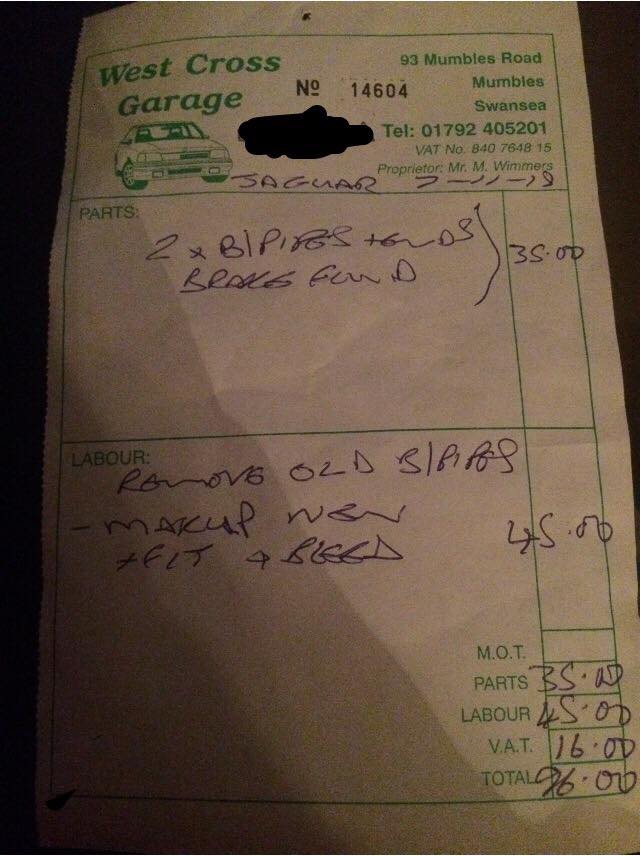 West Cross
Garage
Nº 14604
93 Mumbles Road
Mumbles
Swansea
Tel: 01792 405201
VAT No. 840 7648 15
Proprietor: Mr. M. Wimmers
JAGUAR 7-11-18
PARTS:
2 x B/PIPES + ENDS
BRAKE FLUID
35.00
LABOUR:
REMOVE OLD B/PIPES
- MAKUP NEW
+ FIT + BLEED
45.00
M.O.T.
PARTS 35.00
LABOUR 45.00
V.A.T. 16.00
TOTAL 96.00